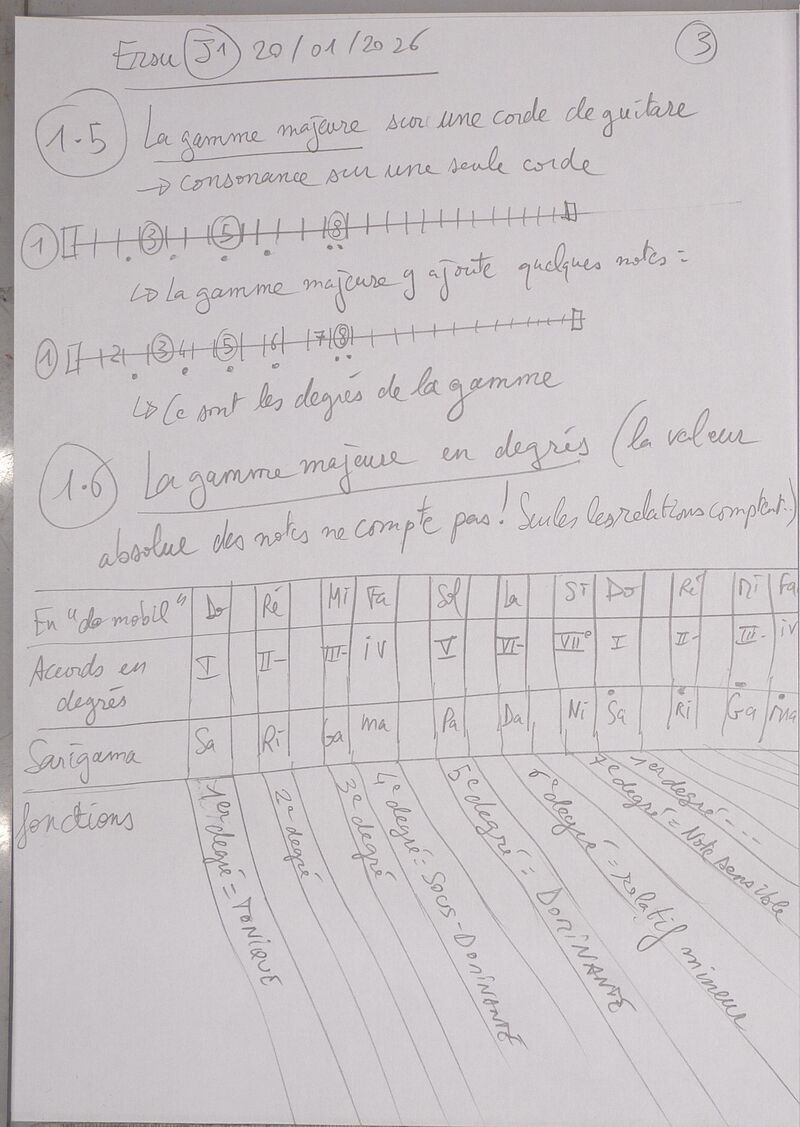 Ersu J1 20/01/2026
3
1.5 La gamme majeure sur une corde de guitare
→ consonance sur une seule corde
1 3 5 8
↳ La gamme majeure y ajoute quelques notes :
1 2 3 4 5 6 7 8
↳ Ce sont les degrés de la gamme
1.6 La gamme majeure en degrés (la valeur
absolue des notes ne compte pas ! Seules les relations comptent..)
En "do mobil" Do Ré Mi Fa Sol La Si Do Ré Mi Fa
Accords en degrés I II- III- IV V VI- VII° I II- III- IV
Sarigama Sa Ri Ga ma Pa Da Ni Ṡa Ṙi Ġa ṁa
fonctions
1er degré = TONIQUE
2e degré
3e degré
4e degré = SOUS-DOMINANTE
5e degré = DOMINANTE
6e degré = relatif mineur
7e degré = Note sensible
1er degré - - -